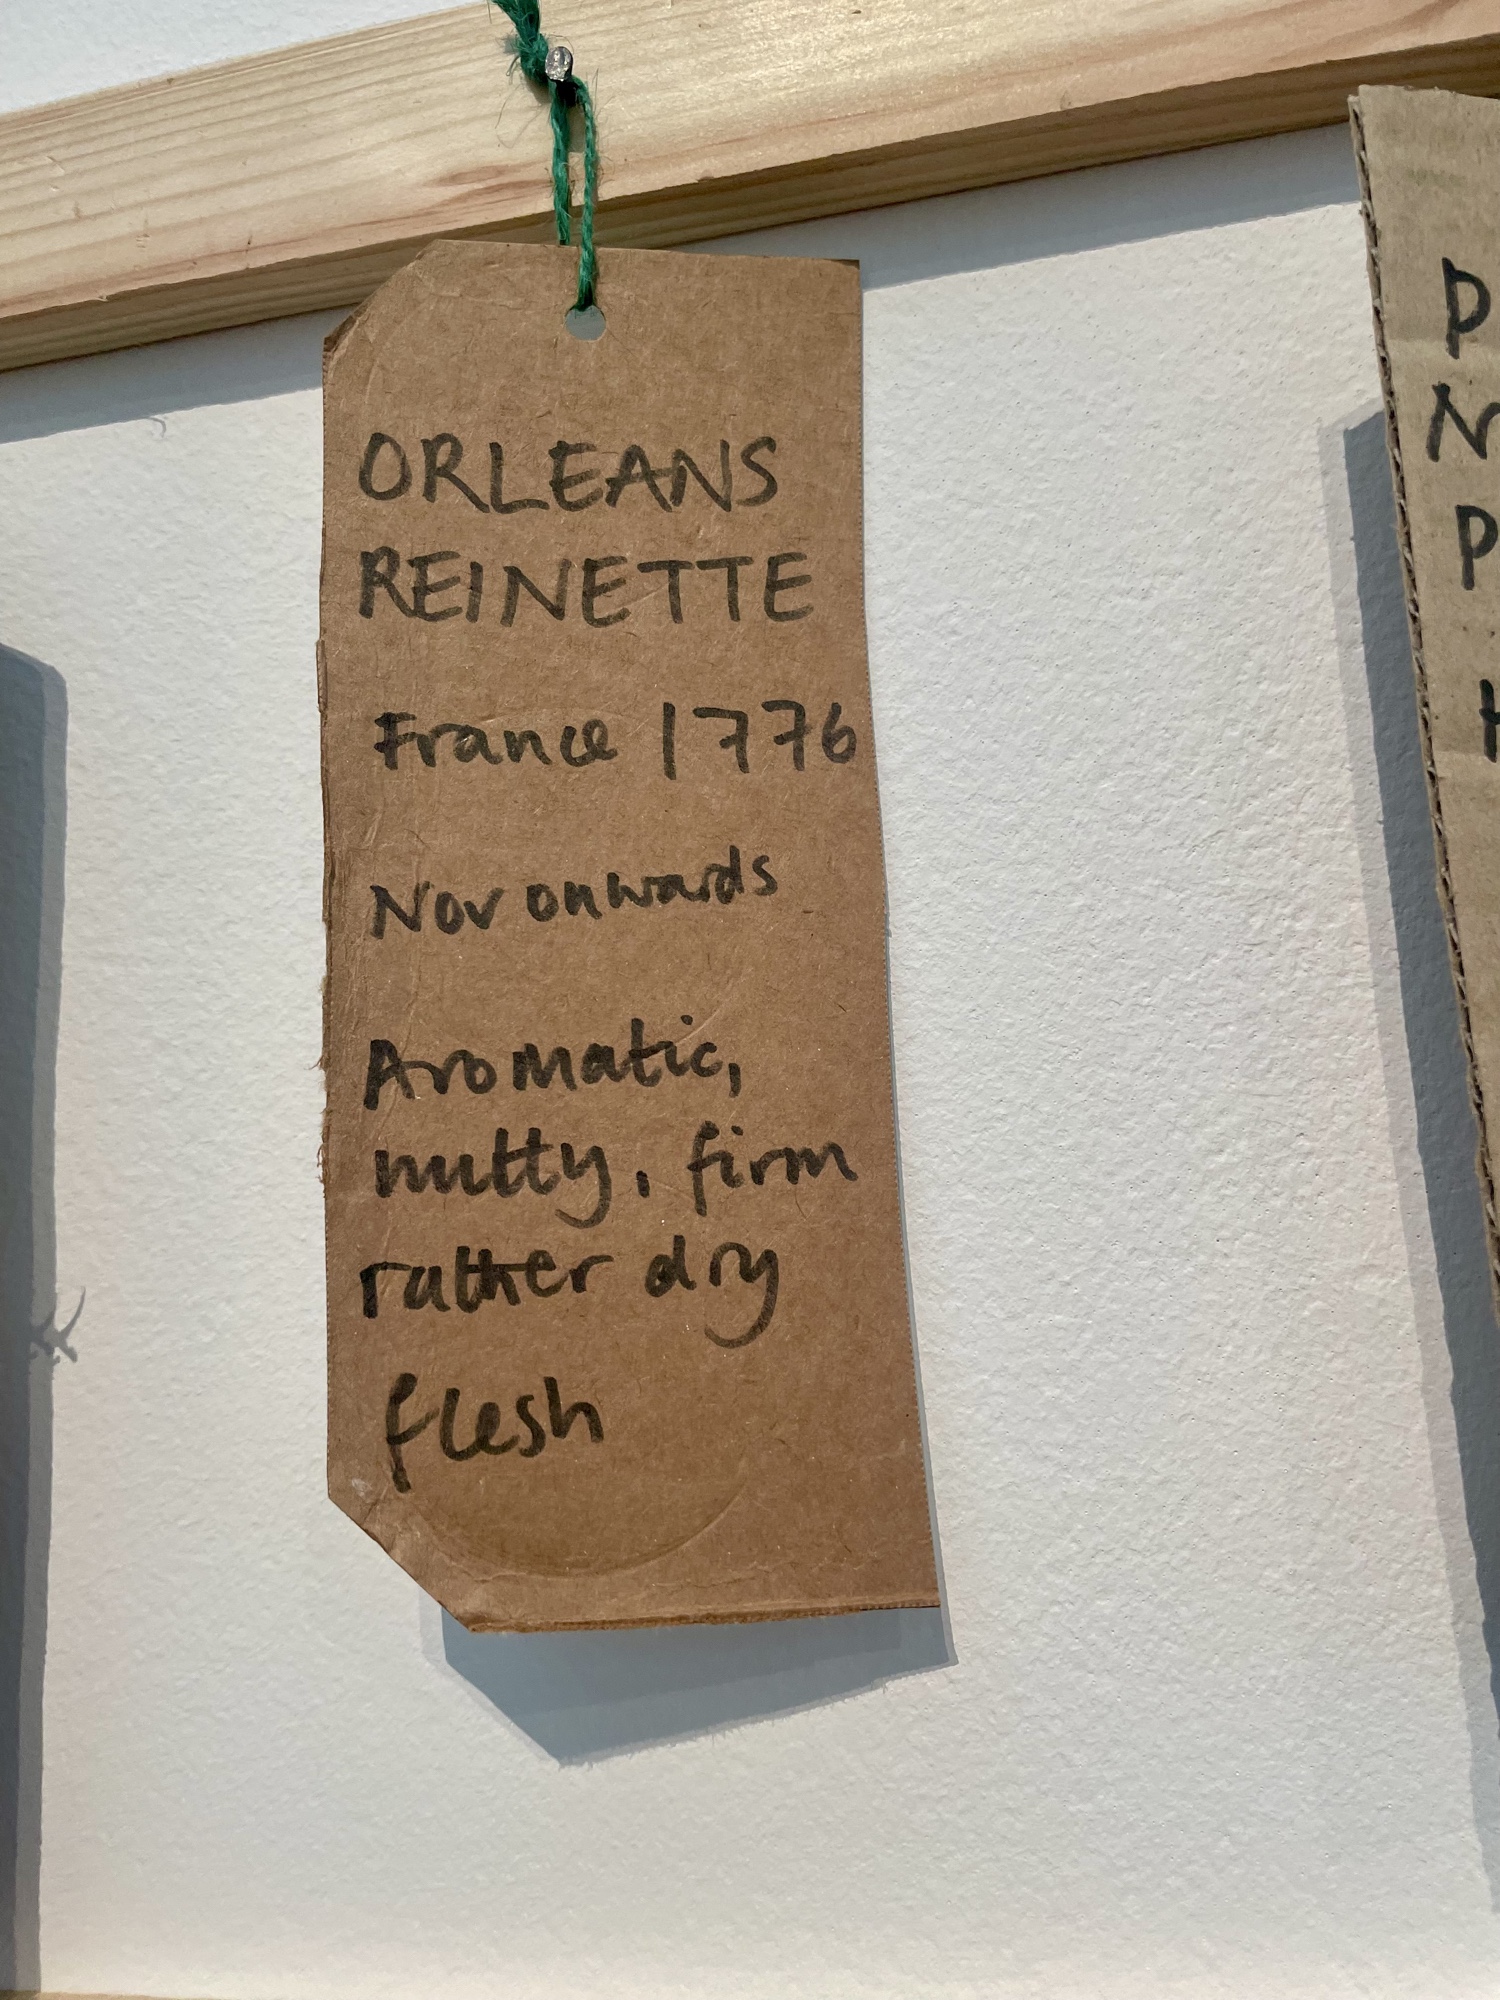 ORLEANS
REINETTE
France 1776
Nov onwards
Aromatic,
nutty, firm
rather dry
flesh